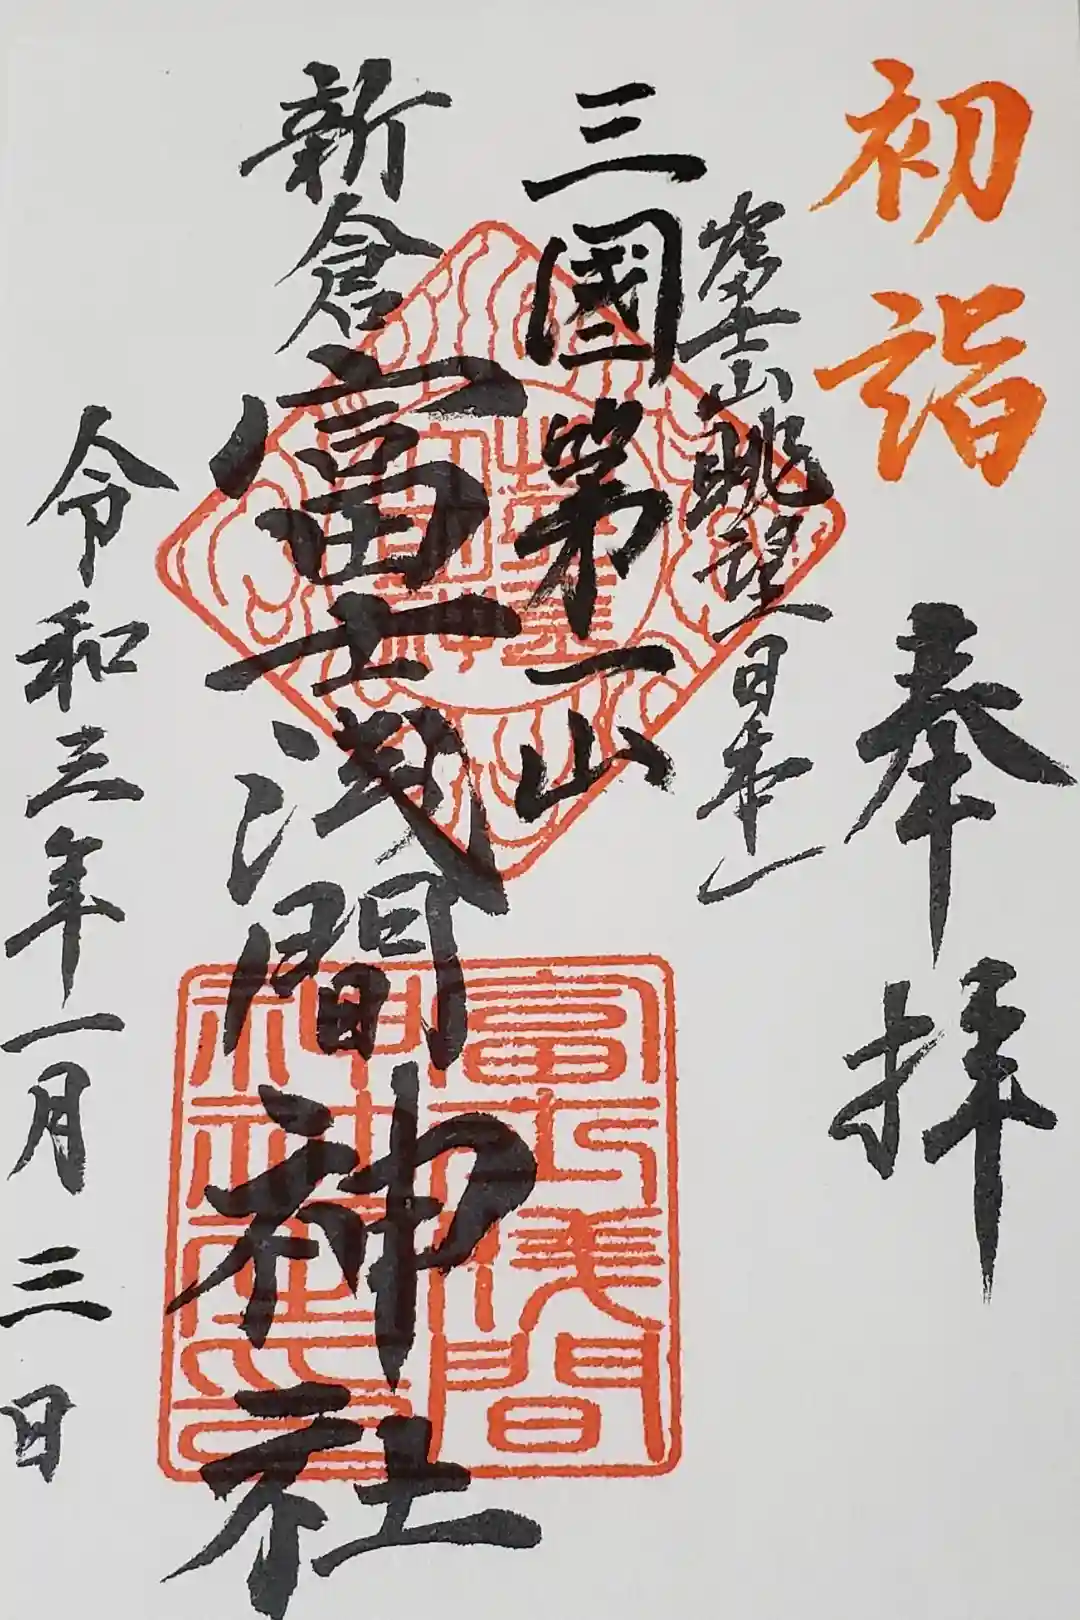 初詣
奉拝
富士山眺望日本一
三國第一山
新倉富士浅間神社
令和三年一月三日
富士浅間
神社之印